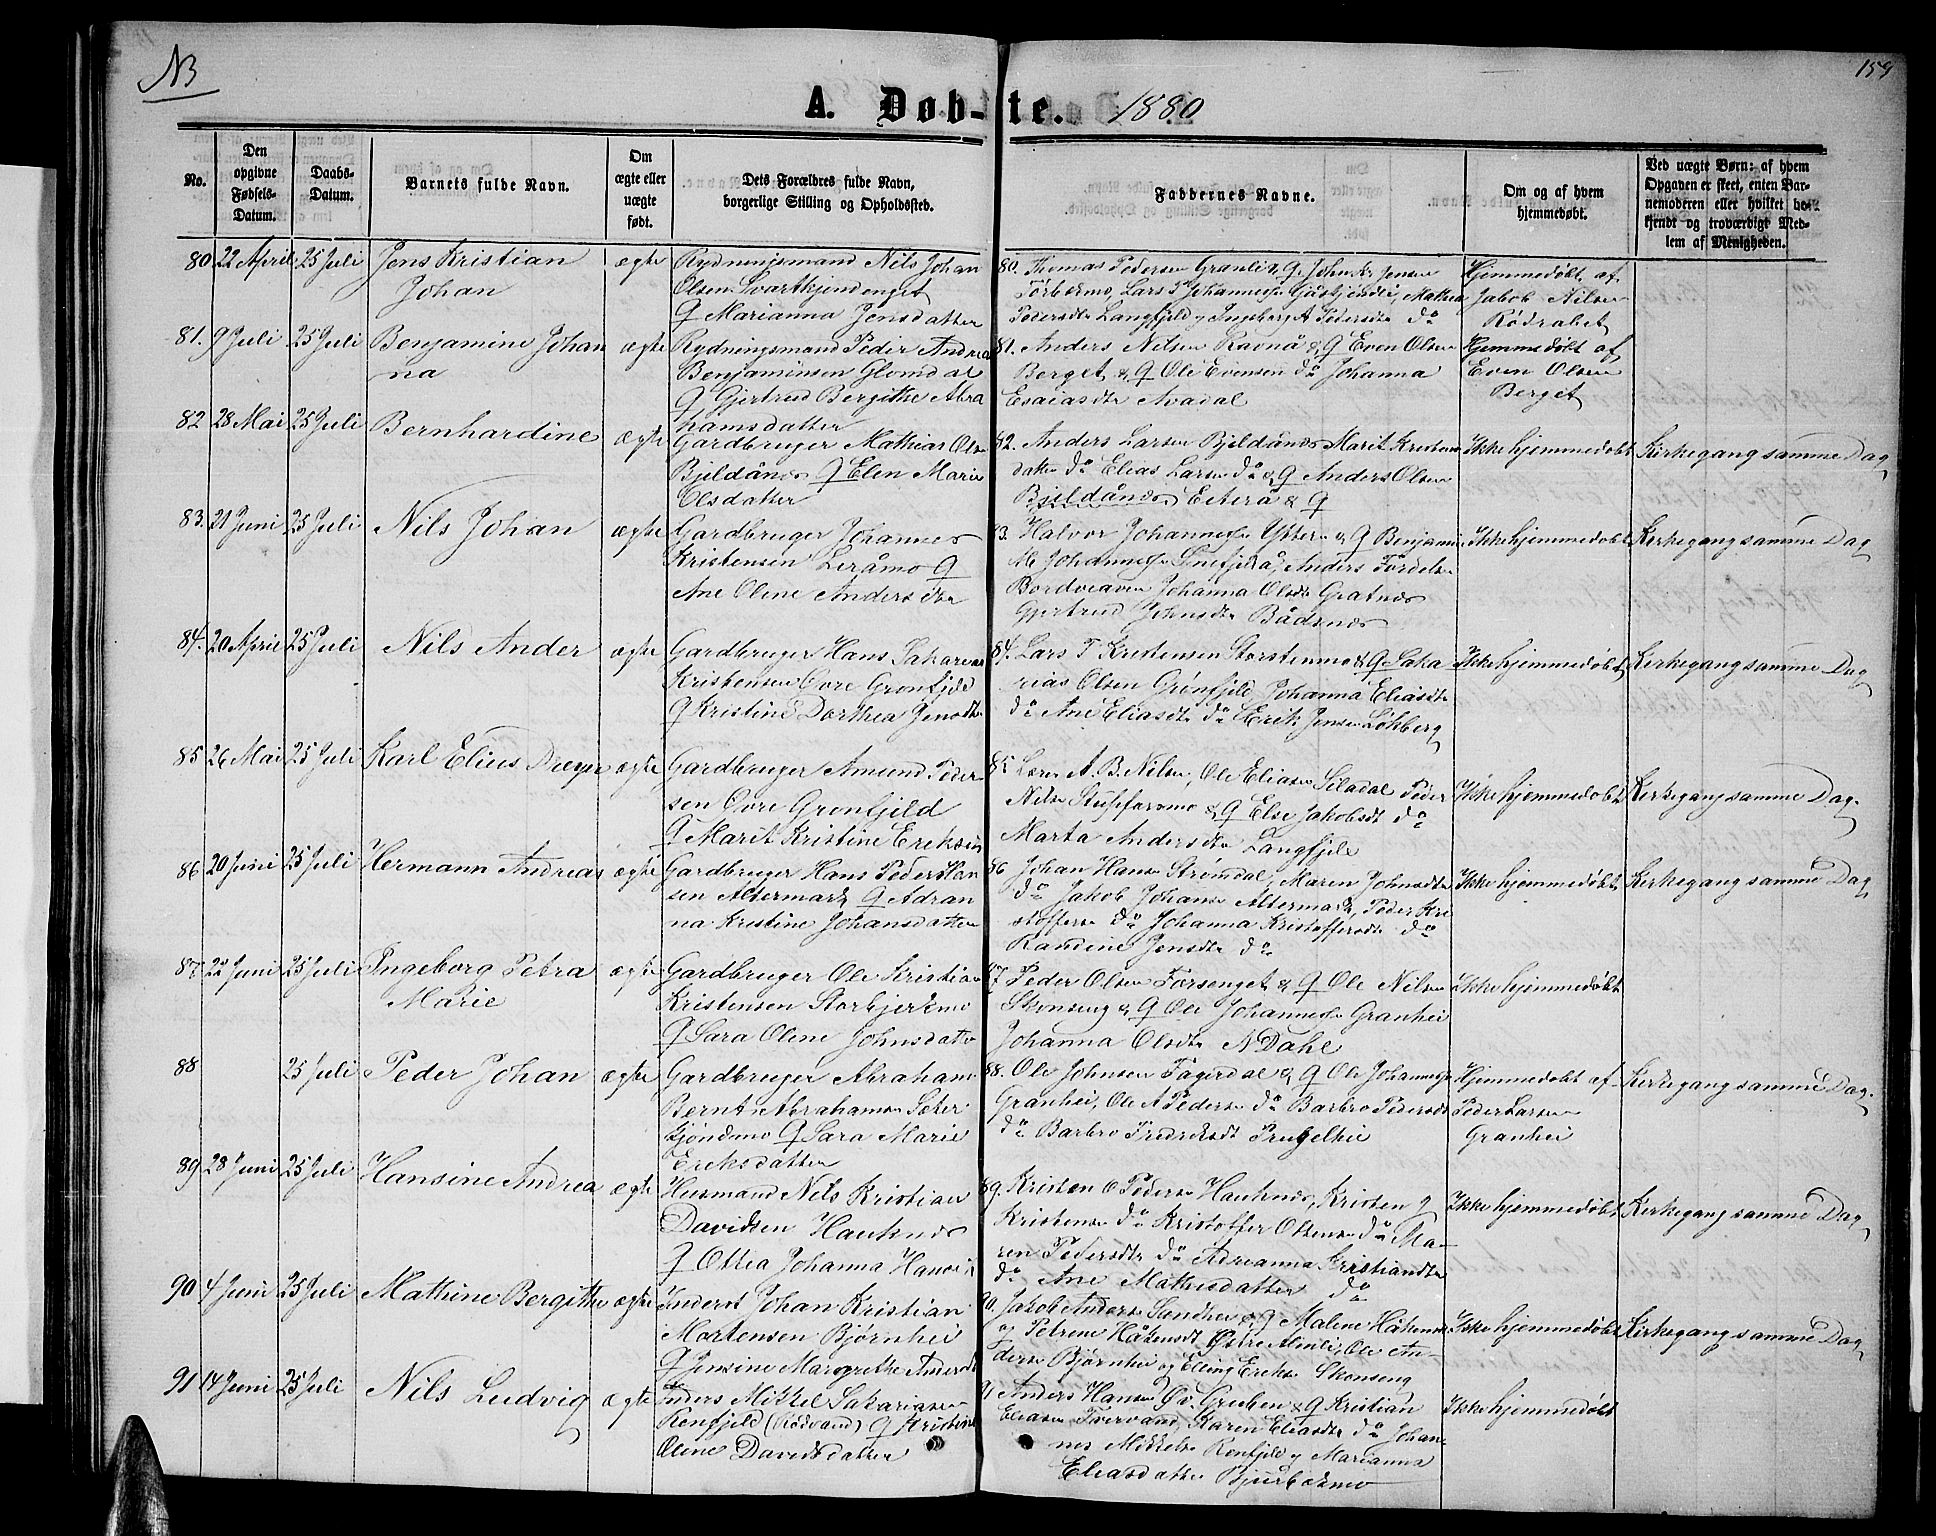 NB
159
A. Døb-te. 1880
No.
Den opgivne Fødsels-Datum.
Daabs-Datum.
Barnets fulde Navn.
Om ægte eller uægte født.
Dets Forældres fulde Navn, borgerlige Stilling og Opholdssted.
Faddernes Navne.
Om og af hvem hjemmedøbt.
Ved uægte Børn: af hvem Opgaven er skeet, enten Barnemoderen eller hvilket bekjendt og troværdigt Medlem af Menigheden.
80 22 April 25 Juli Jens Kristian
Johan
ægte
Rydningsmand Nils Johan
Olsen Svartkjendenget
& Marianna Jensdatter
80. Thomas Pedersen Granli & G. John Kr Jensen
Lars Johannessen
Pedersdtr Langfjeld Ingeborg A Pedersdtr do
Hjemmedøbt af
Jakob Nilsen
Rødvabet
81. 9 Juli 25 Juli Benjamine Johan
na
ægte
Rydningsmand Peder Andrea
Benjaminsen Glomdal
G Gjertrud Bergithe Abra
hamsdatter
81. Anders Nilsen Ravnå & G Even Olsen
Berget & G Ole Evensen do Johanna
Esaiasdtr Avadal
Hjemmedøbt af
Even Olsen
Berget
82 28 Mai 25 Juli Bernhardine
ægte
Gardbruger Mathias Olsen
Bjeldånes G Elen Marie
Olsdatter
82. Anders Larsen Bjeldånes Marit Kristens
datter do Elias Larsen do & G Anders Olsen
Bjeldånes Eiterå & G
Ikke hjemmedøbt
Kirkegang samme Dag
83. 21 Juni 25 Juli Nils Johan
ægte
Gardbruger Johannes
Kristensen Leråmo G
Ane Olene Andersdtr
83. Halvor Johannessen Ytteren & G Benjamin
M Johannessen Anders
Johanna Olsdtr Gratnes
Gjertrud Johnsdtr Bådsnes
Ikke hjemmedøbt
Kirkegang samme Dag
84. 20 April 25 Juli Nils Ander
ægte
Gardbruger Hans Sakarias
Kristensen Øvre Grønfjeld
G Kristine Dorthea Jensdtr
84. Lars T Kristensen Storstenmo & G Saka
rias Olsen Grønfjeld Johanna Eliasdtr
do Ane Eliasdtr do Erik Jensen Løkberg
Ikke hjemmedøbt
Kirkegang samme Dag
85 26 Mai 25 Juli Karl Elius Dreyer
ægte
Gardbruger Amund Peder
sen Øvre Grønfjeld
G Marit Kristine Eriksdtr
85 Lærer A. B. Nilsen, Ole Eliasen Siladal Peder
Nilsen Stupforsmo & G Else Jakobsdt do
Marta Andersdtr Langfjeld
Ikke hjemmedøbt
Kirkegang samme Dag.
86 20 Juni 25 Juli Hermann Andreas
ægte
Gardbruger Hans Peder Han
sen Altermark G Adrian
na Kristine Johansdatter
86 Johan Hansen Strømdal, Maren Johnsdtr
do Jakob Johansen Altermark, Peder Kri
stoffersen do Johanna Kristoffersdtr do
Randine Jensdtr do
Ikke hjemmedøbt
Kirkegang samme Dag
87 22 Juni 25 Juli Ingeborg Petra
Marie
ægte
Gardbruger Ole Kristian
Kristensen Storbjerkmo
G Sara Olene Johnsdatter
87 Peder Olsen Forsenget & G Ole Nilsen
Skonseng & G Ole Johannessen Granhei
Johanna Olsdtr N Dahl
Ikke hjemmedøbt
88 25 Juli Peder Johan
ægte
Gardbruger Abraham
Bernt Abrahamsen Sæter
kjøndmo G Sara Marie
Eriksdatter
88. Ole Johnsen Fagerdal & G Ole Johannessen
Granhei, Ole A Pedersen do Barbro Pedersdt
do Barbro Fredriksdt Prugelhei
Hjemmedøbt af
Peder Larsen
Granhei
Kirkegang samme Dag.
89 28 Juni 25 Juli Hansine Andrea
ægte
Husmand Nils Kristian
Davidsen Hauknes
G Ottea Johanna
89. Kristen O Pedersen Hauknes, Kristen
Kristensen do Kristoffer Ottesen do Ma
ren Pedersdtr do Adrianna Kristiandtr
do Ane Mathisdatter do
Ikke hjemmedøbt
Kirkegang samme Dag
90 4 Juni 25 Juli Mathine Bergithe
ægte
Inderst Johan Kristian
Mortensen Bjørnhei
G Jensine Margrethe Andersdt
90. Jakob Andersen Sandhei & G Malene Håkens
og Petrine Håkensdt Østre Almli, Ole An
dersen Bjørnhei og Elling Eriksen Skonseng
Ikke hjemmedøbt
Kirkegang samme Dag
91 14 Juni 25 Juli Nils Ludvig
ægte
Inders Mikkel Sakariasen
Renfjeld (Rødvand) G Kristine
Oline Davidsdatter
91 Anders Hansen Øv. Gruben & G Kristian
Eliasen Tvervand, Karen Eliasdtr do Johan
nes Mikkelsen Renfjeld og Marianna
Eliasdatter Bjurbækmo
Ikke hjemmedøbt